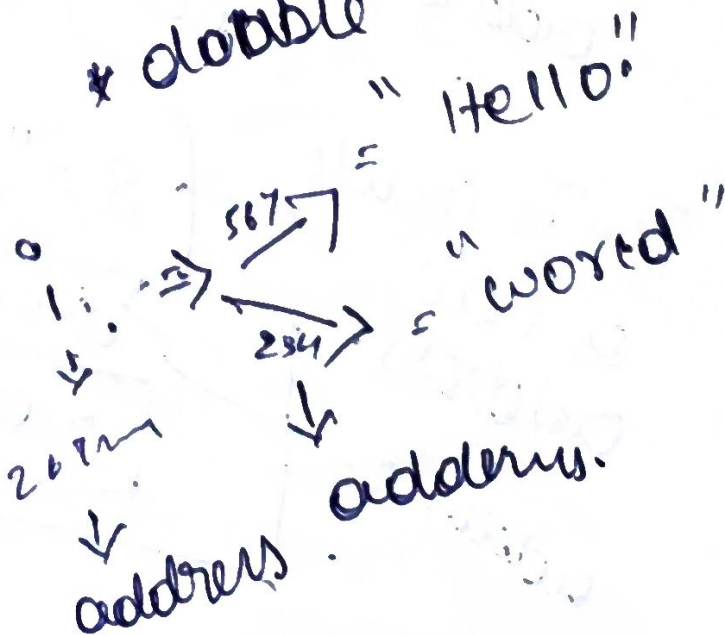 * double
= "Hello"
567
i =>
234 = "world"
address
address